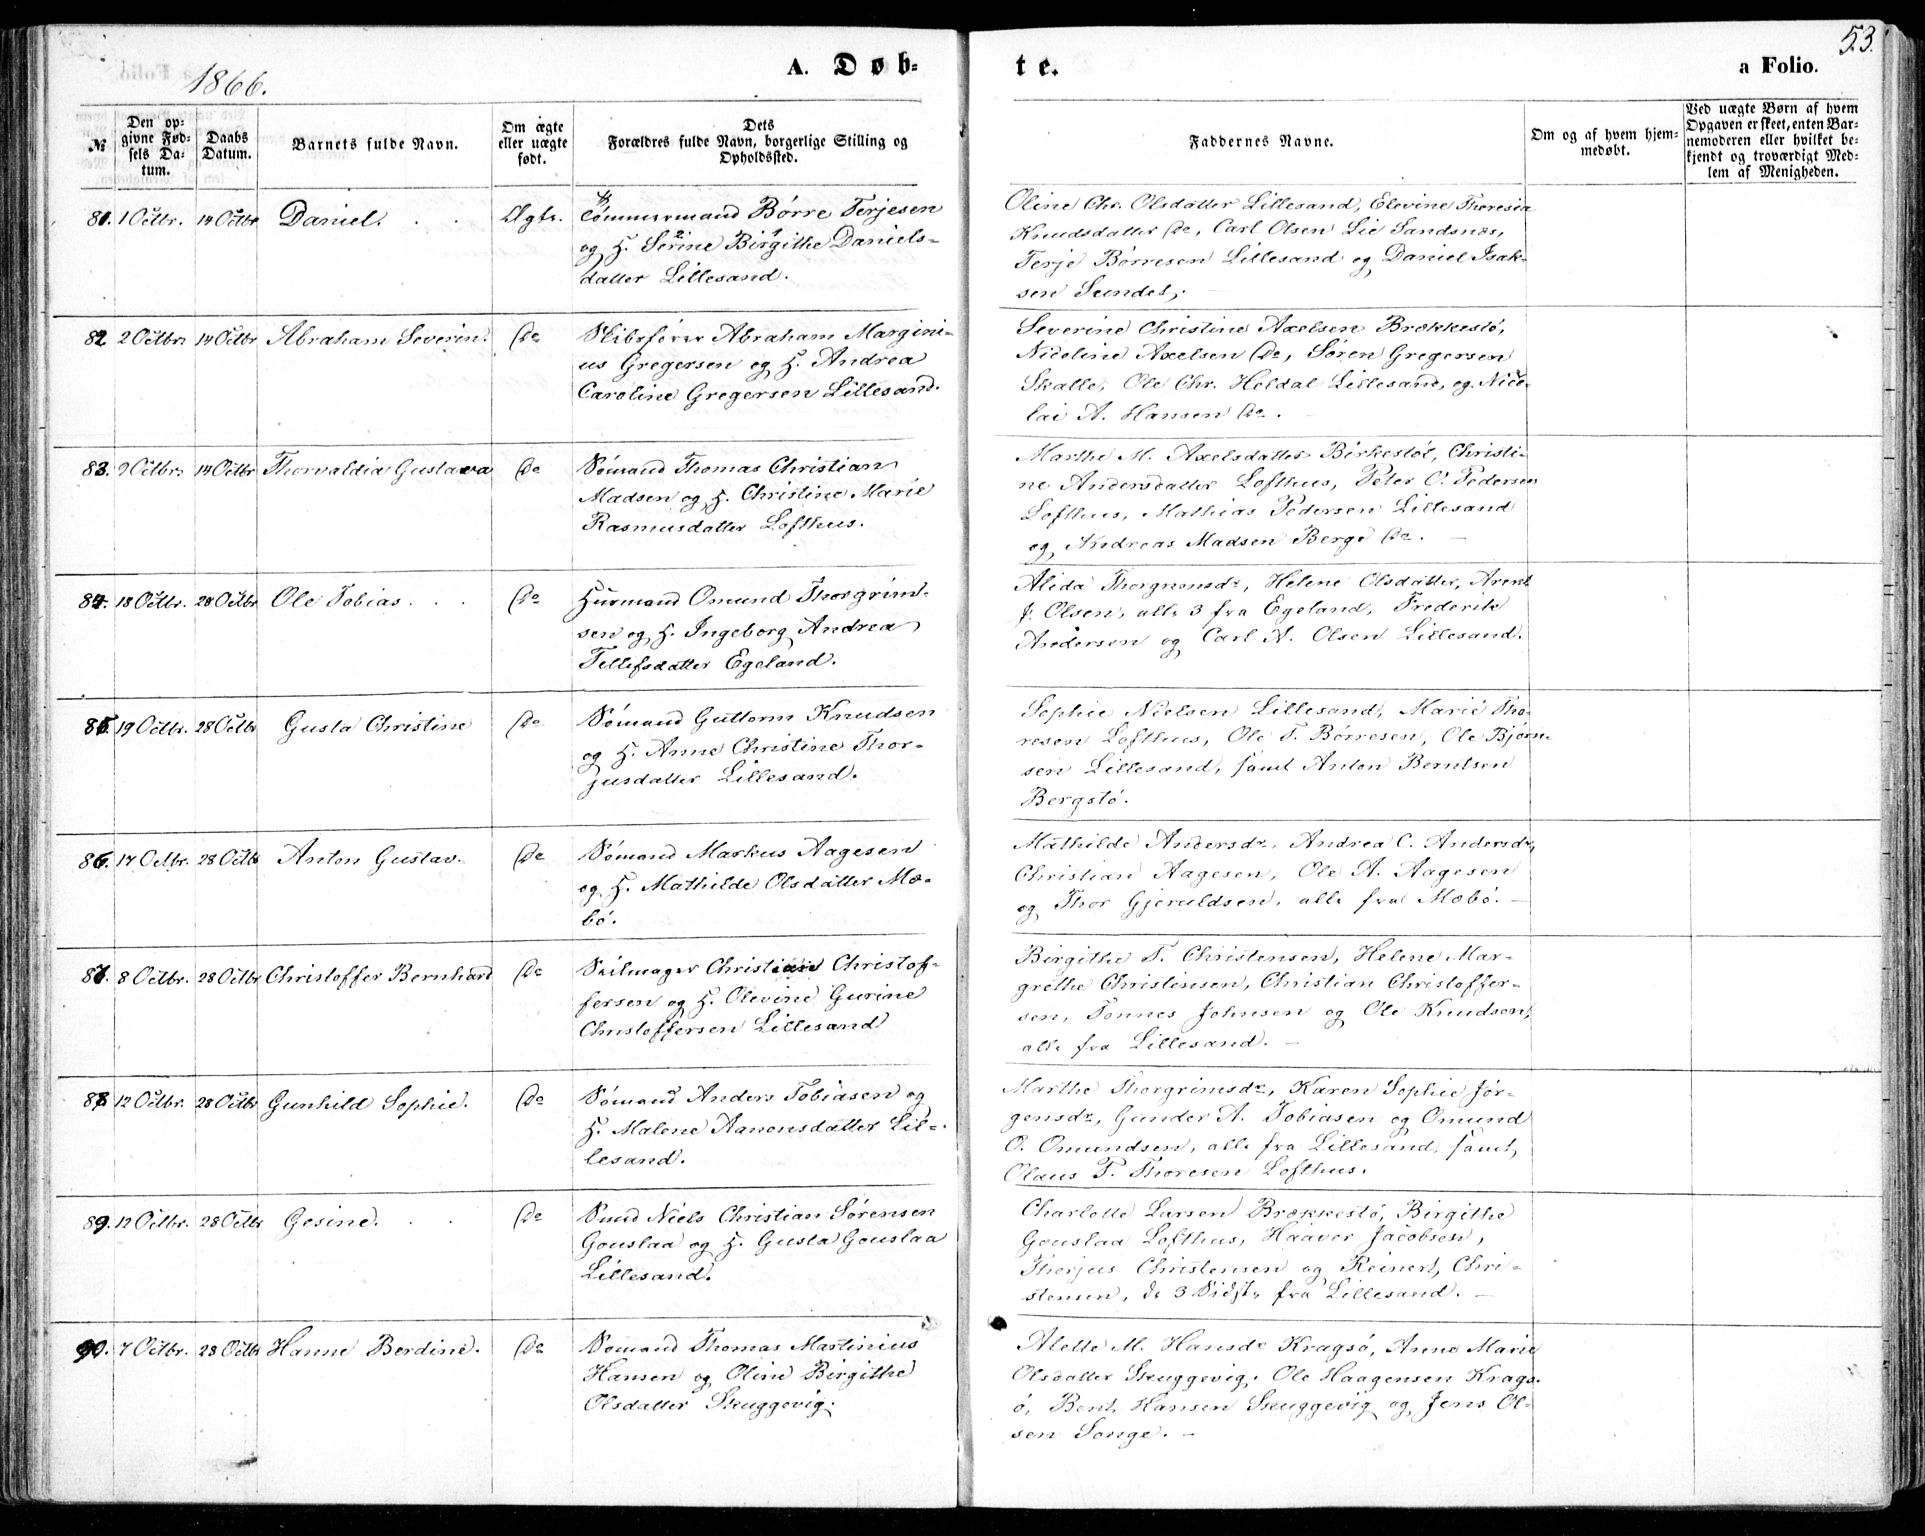 1866.
A. Døb-
te.
a Folio.
53.
№
Den op-
givne Fød-
sels Da-
tum.
Daabs
Datum.
Barnets fulde Navn.
Om ægte
eller uægte
født.
Dets
Forældres fulde Navn, borgerlige Stilling og
Opholdssted.
Faddernes Navne.
Om og af hvem hjem-
medøbt.
Ved uægte Børn af hvem
Opgaven er skeet, enten Bar-
nemoderen eller hvilket be-
kjendt og troværdigt Med-
lem af Menigheden.
81. 1 Octbr. 14 Octbr Daniel. Ægte.
Tømmermand Børre Terjesen
og H. Serine Birgithe Daniels-
datter Lillesand.
Oline Chr. Olsdatter Lillesand, Elevine Theresia
Knudsdatter Do, Carl Olsen Lie Sandsnæs,
Terje Børresen Lillesand og Daniel Isak-
sen Sundet.
82. 2 Octbr. 14 Octbr Abraham Severin. Do
Skibsfører Abraham Margini-
us Gregersen og H. Andrea
Caroline Gregersen Lillesand.
Severine Christine Axelsen Brækkestø,
Nicoline Axelsen Do, Søren Gregersen
Skalle, Ole Chr. Heldal Lillesand, og Nico-
lai A. Hansen Do.
83. 9 Octbr. 14 Octbr Thorvaldia Gustava Do
Sømand Thomas Christian
Madsen og H. Christine Marie
Rasmusdatter Lofthus.
Marthe M. Axelsdatter Birkestøl, Christi-
ne Andersdatter Lofthus, Peter O. Pedersen
Lofthus, Mathias Pedersen Lillesand
og Andreas Madsen Berge Do.
84. 18 Octbr. 28 Octbr Ole Tobias. Do
Huusmand Omund Thorgrim-
sen og H. Ingeborg Andrea
Tellefsdatter Egeland.
Alida Thorgrimsdr, Helene Olsdatter, Arent
J. Olsen, alle 3 fra Egeland, Frederik
Andersen og Carl A. Olsen Lillesand.
85. 19 Octbr. 28 Octbr Gusta Christine Do
Sømand Guttorm Knudsen
og H. Anne Christine Thor-
jusdatter Lillesand.
Sophie Nielsen Lillesand, Marie Tho-
resen Lofthus, Ole T. Børresen, Ole Bjørn-
sen Lillesand, samt Anton Berntsen
Bergstø.
86. 17 Octbr. 28 Octbr Anton Gustav. Do
Sømand Markus Aagesen
og H. Mathilde Olsdatter Mæ-
bø.
Mathilde Andersdr, Andrea C. Andersdr,
Christian Aagesen, Ole A. Aagesen
og Thor Gjeruldsen, alle fra Mæbø.
87. 8 Octbr. 28 Octbr Christoffer Bernhard Do
Seilmager Christian Christof-
fersen og H. Olevine Gurine
Christoffersen Lillesand
Birgithe T. Christensen, Helene Mar-
grethe Christensen, Christian Christoffer-
sen, Tønnes Johnsen og Ole Knudsen,
alle fra Lillesand.
88. 12 Octbr. 28 Octbr Gunhild Sophie. Do
Sømand Anders Tobiasen og
H. Malene Aanonsdatter Lil-
lesand.
Marthe Thorgrimsdr, Karen Sophie Jør-
gensdr, Gunder A. Tobiasen og Omund
O. Omundsen, alle fra Lillesand, samt
Olaus T. Thoresen Lofthus.
89. 12 Octbr. 28 Octbr Gesine. Do
Smed Niels Christian Sørensen
Gouslaa og H. Gusta Gouslaa
Lillesand.
Charlotte Larsen Brækkestø, Birgithe
Gouslaa Lofthus, Haaver Jacobsen,
Thorjus Christensen og Reinert Chri-
stensen, de 3 Sidste fra Lillesand.
90. 7 Octbr. 28 Octbr Hanne Berdine. Do
Sømand Thomas Martinius
Hansen og Oline Birgithe
Olsdatter Skuggevig.
Alette M. Hansdr Kragsø, Anne Marie
Olsdatter Skuggevig, Ole Haagensen Krags-
ø, Bent Hansen Skuggevig og Jens Ol-
sen Songe.